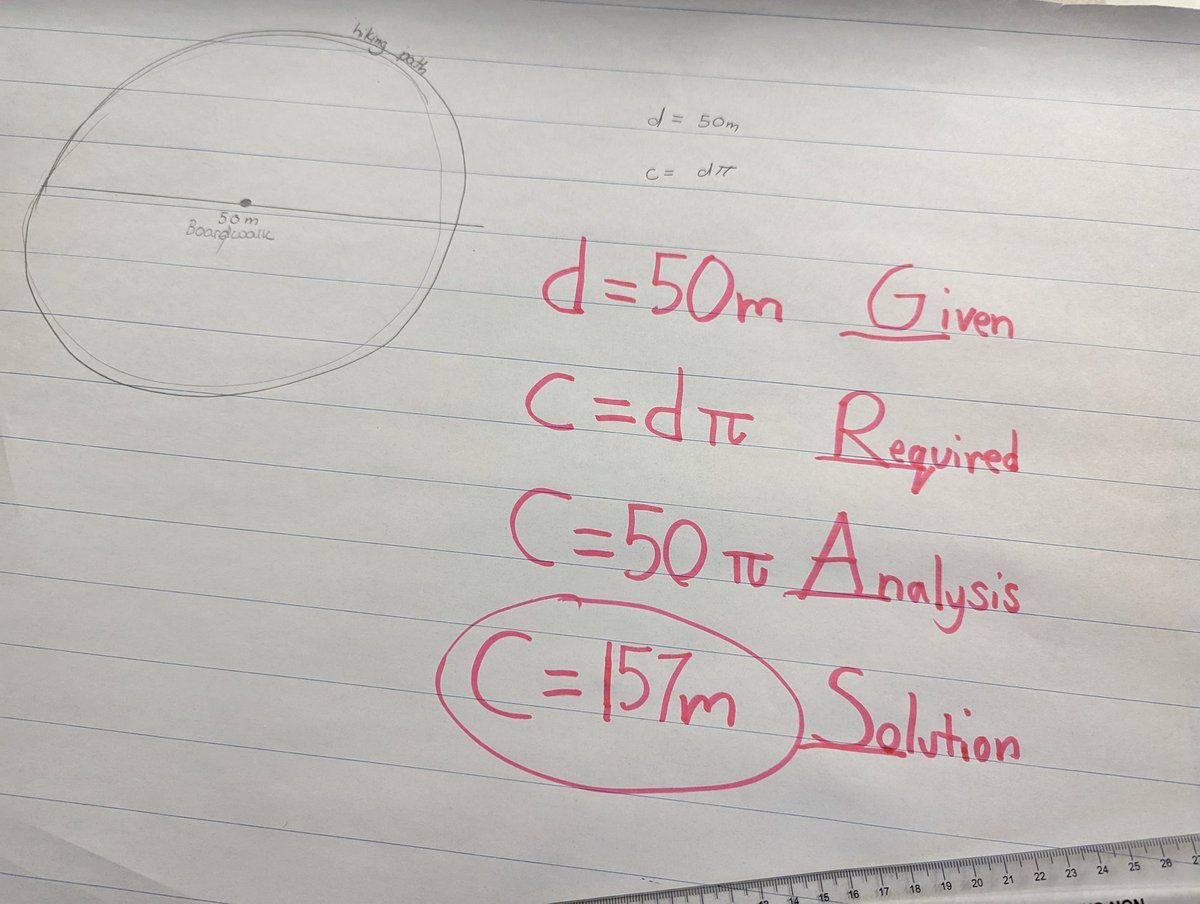 hiking path
50m
Boardwalk
d = 50m
c = dπ
d=50m Given
C=dπ Required
C=50π Analysis
C=157m Solution
14 15 16 17 18 19 20 21 22 23 24 25 26